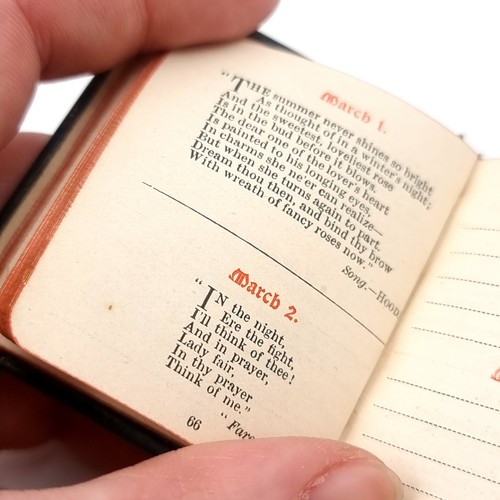 March 1.
"THE summer never shines so bright
As thought of in a winter's night;
And the sweetest, loveliest rose
Is in the bud before it blows.
The dear one of the lover's heart
Is painted to his longing eyes,
In charms she ne'er can realize—
But when she turns again to part.
Dream thou then, and bind thy brow
With wreath of fancy roses now."
Song.—HOOD
March 2.
"IN the night,
Ere the fight,
I'll think of thee!
And in prayer,
Lady fair,
In thy prayer
Think of me."
66